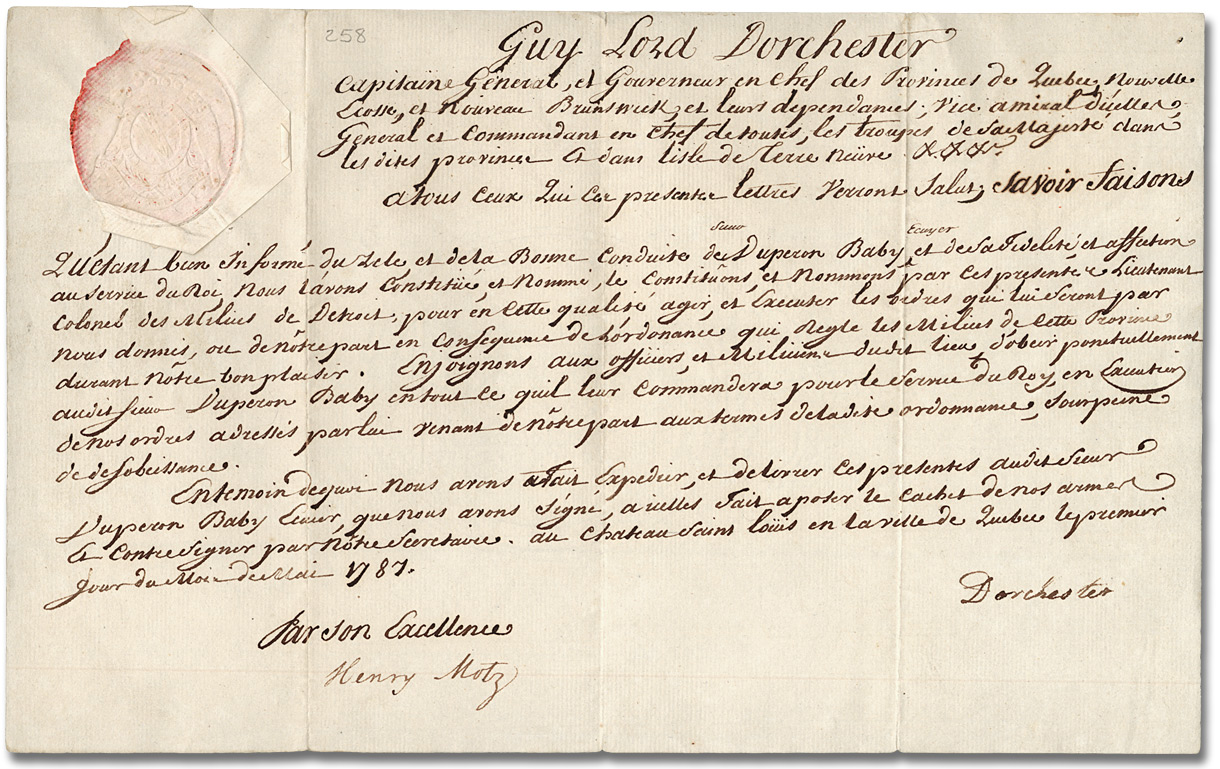 258
Guy Lord Dorchester
Capitaine Général, et Gouverneur en Chef des Provinces de Quebec, Nouvelle
Ecosse, et Nouveau Brunswick, et leurs dependances, vice amiral d'icelles
Général et Commandant en Chef de toutes, les troupes de Sa Majesté dans
les dites provinces Et dans l'isle de Terre Neüve &.&.&c.
a tous ceux Qui Ces presentes lettres Verront Salut, Savoir Faisons
Sieur Ecuyer
Qu'étant bien Informé du Zele, et de la Bonne Conduite de Duperon Baby, et de Sa Fidelité, et affection
au Service du Roi, Nous l'avons Constitué, et Nommé, le Constituöns, et Nommons par Ces presentes Lieutenant
Colonel des Milices de Detroit, pour en Cette qualité agir, et Executer les ordres qui lui Seront par
nous donnés, ou de nôtre part en Consequence de L'ordonance qui Regle les Milices de Cette Province
durant nôtre bon plaisir. Enjoignons aux officiers, et Miliciens du dit lieu d'obeir ponctuellement
audit Sieur Duperon Baby en tout ce qu'il leur Commandera pour le Service du Roy, en Execution
de nos ordres adressés par lui venant de nôtre part aux termes de la dite ordonnance, Sour peine
de desobeissance.
En temoin de quoi Nous avons fait Expedier, et delivrer Ces presentes audit Sieur
Duperon Baby Ecuier, que nous avons Signé, a icelles Fait aposer le Cachet de nos armes
Et Contre Signer par Nôtre Secretaire. au Chateau Saint Loüis en la Ville de Quebec le premier
Jour du Mois de Mai 1787.
Dorchester
Par Son Excellence
Henry Motz